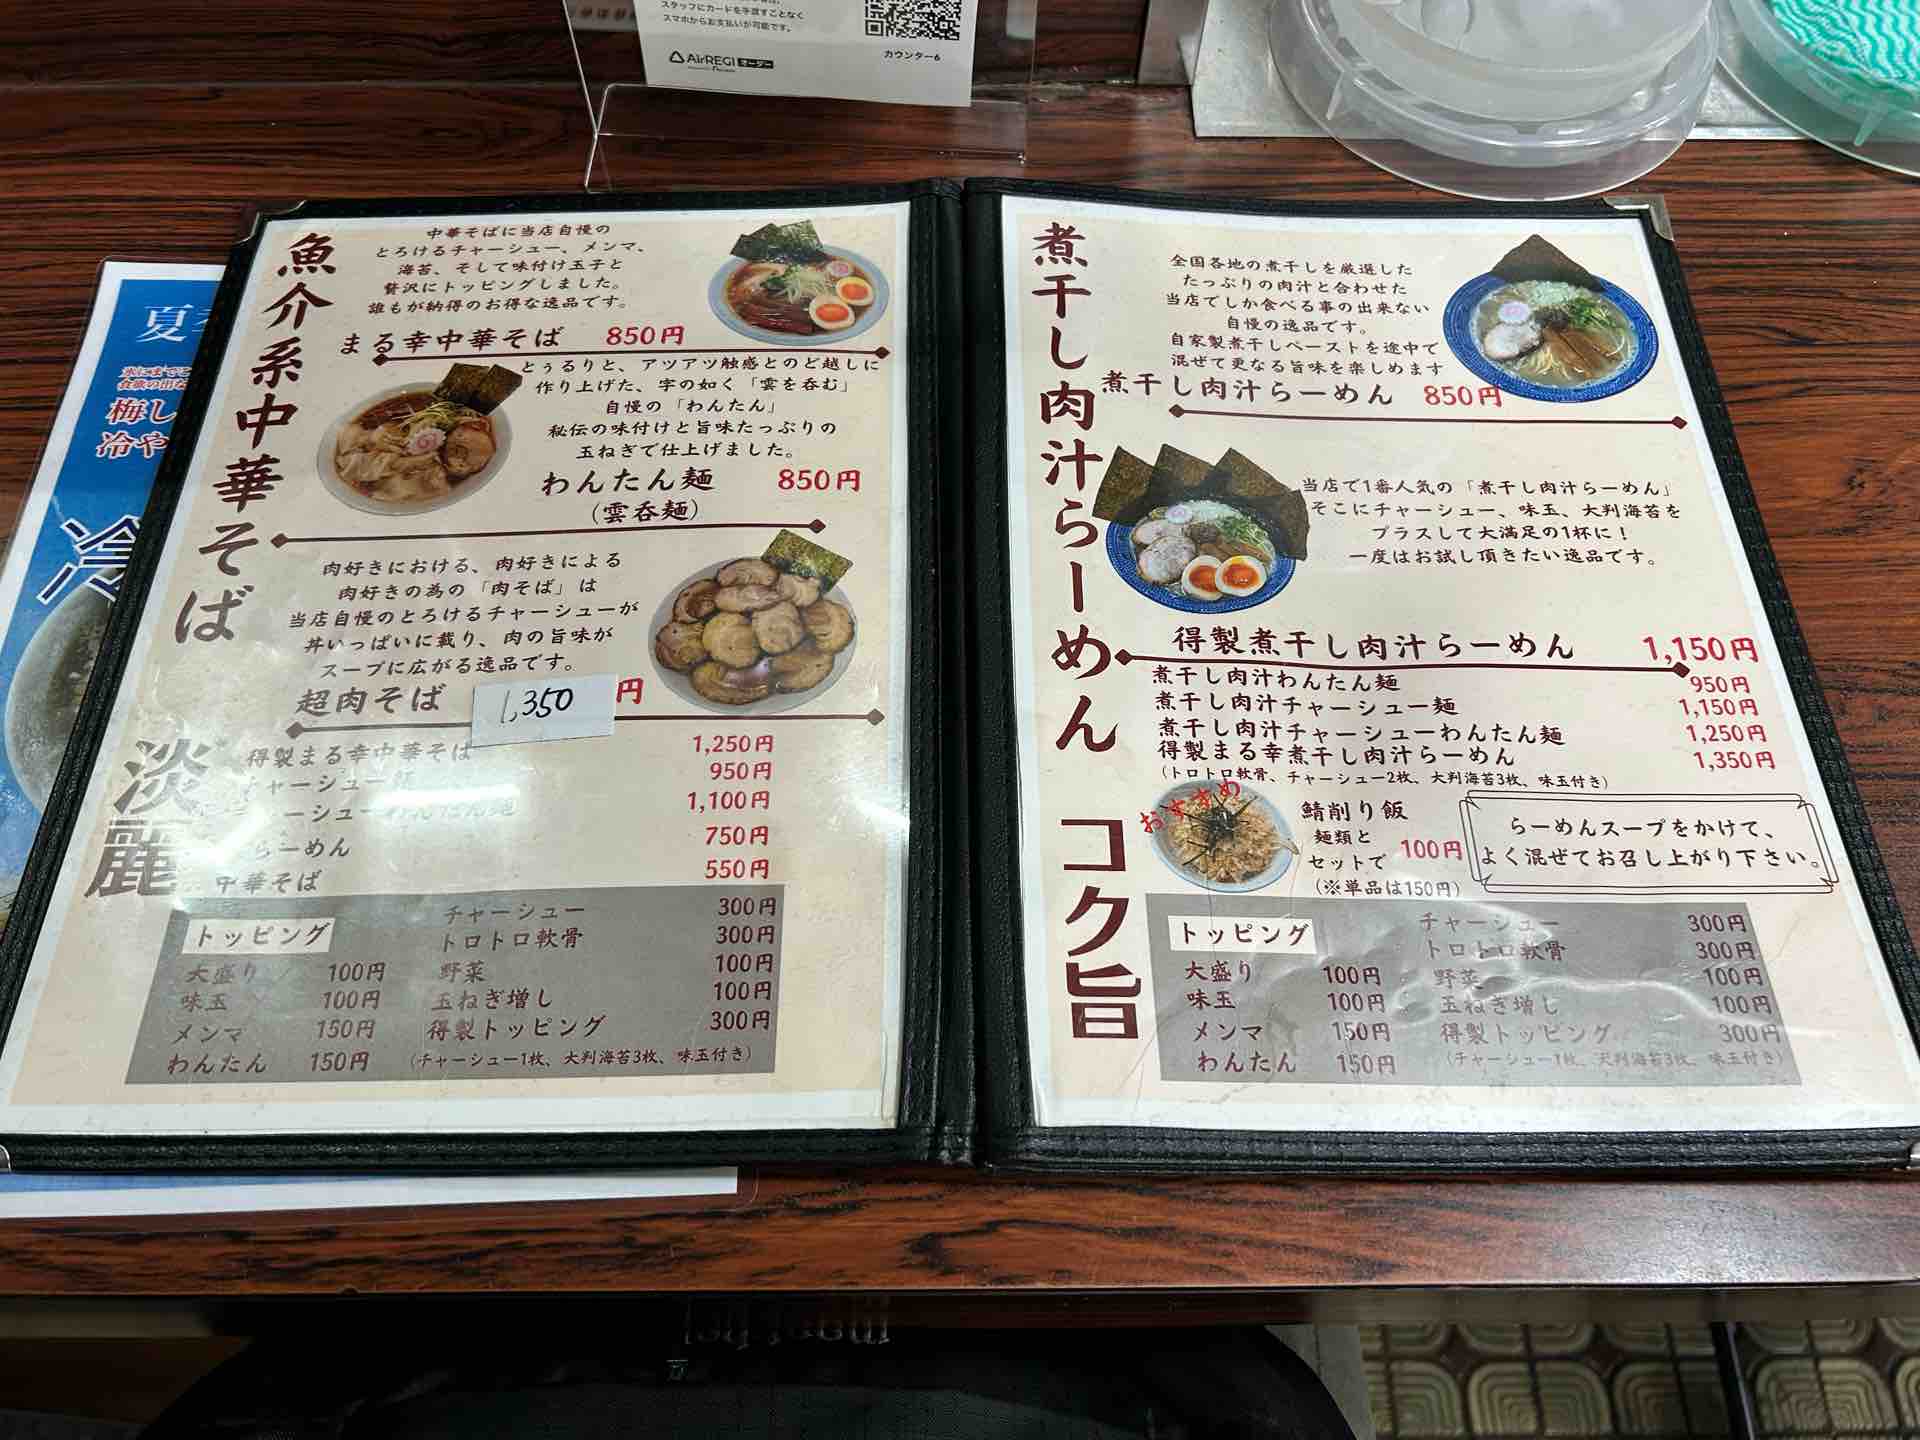 スタッフにカードを手渡すことなく
スマホからお支払いが可能です。
AirREGI オーダー
カウンター6
夏
梅し
冷や
冷
魚介系中華そば
淡麗
中華そばに当店自慢の
とろけるチャーシュー、メンマ、
海苔、そして味付け玉子と
贅沢にトッピングしました。
誰もが納得のお得な逸品です。
まる幸中華そば 850円
とぅるりと、アツアツ触感とのど越しに
作り上げた、字の如く「雲を呑む」
自慢の「わんたん」
秘伝の味付けと旨味たっぷりの
玉ねぎで仕上げました。
わんたん麺 850円
(雲呑麺)
肉好きにおける、肉好きによる
肉好きの為の「肉そば」は
当店自慢のとろけるチャーシューが
丼いっぱいに載り、肉の旨味が
スープに広がる逸品です。
超肉そば 1,350 円
得製まる幸中華そば 1,250円
チャーシュー麺 950円
チャーシューわんたん麺 1,100円
らーめん 750円
中華そば 550円
トッピング
大盛り 100円
味玉 100円
メンマ 150円
わんたん 150円
チャーシュー 300円
トロトロ軟骨 300円
野菜 100円
玉ねぎ増し 100円
得製トッピング 300円
(チャーシュー1枚、大判海苔3枚、味玉付き)
煮干し肉汁らーめん
コク旨
全国各地の煮干しを厳選した
たっぷりの肉汁と合わせた
当店でしか食べる事の出来ない
自慢の逸品です。
自家製煮干しペーストを途中で
混ぜて更なる旨味を楽しめます
煮干し肉汁らーめん 850円
当店で1番人気の「煮干し肉汁らーめん」
そこにチャーシュー、味玉、大判海苔を
プラスして大満足の1杯に!
一度はお試し頂きたい逸品です。
得製煮干し肉汁らーめん 1,150円
煮干し肉汁わんたん麺 950円
煮干し肉汁チャーシュー麺 1,150円
煮干し肉汁チャーシューわんたん麺 1,250円
得製まる幸煮干し肉汁らーめん 1,350円
(トロトロ軟骨、チャーシュー2枚、大判海苔3枚、味玉付き)
おすすめ
鯖削り飯
麺類と
セットで 100円
(※単品は150円)
らーめんスープをかけて、
よく混ぜてお召し上がり下さい。
トッピング
大盛り 100円
味玉 100円
メンマ 150円
わんたん 150円
チャーシュー 300円
トロトロ軟骨 300円
野菜 100円
玉ねぎ増し 100円
得製トッピング 300円
(チャーシュー1枚、大判海苔3枚、味玉付き)